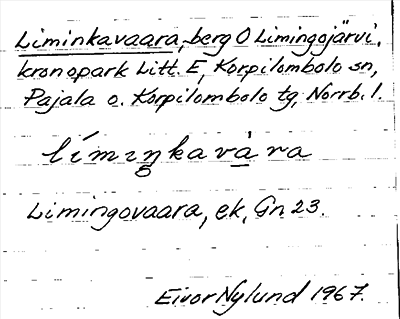 Liminkavaara, berg O Limingojärvi,
kronopark Litt. E, Korpilombolo sn,
Pajala o. Korpilombolo tg, Norrb. l.
límiŋkava̲ra
Limingovaara, ek, Gn 23.
Eivor Nylund 1967.